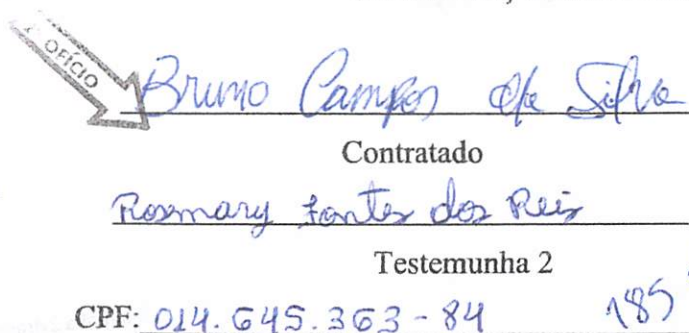 OFÍCIO
Bruno Campos da Silva
Contratado
Rosemary Fontes dos Reis
Testemunha 2
CPF: 014.645.363-84
185